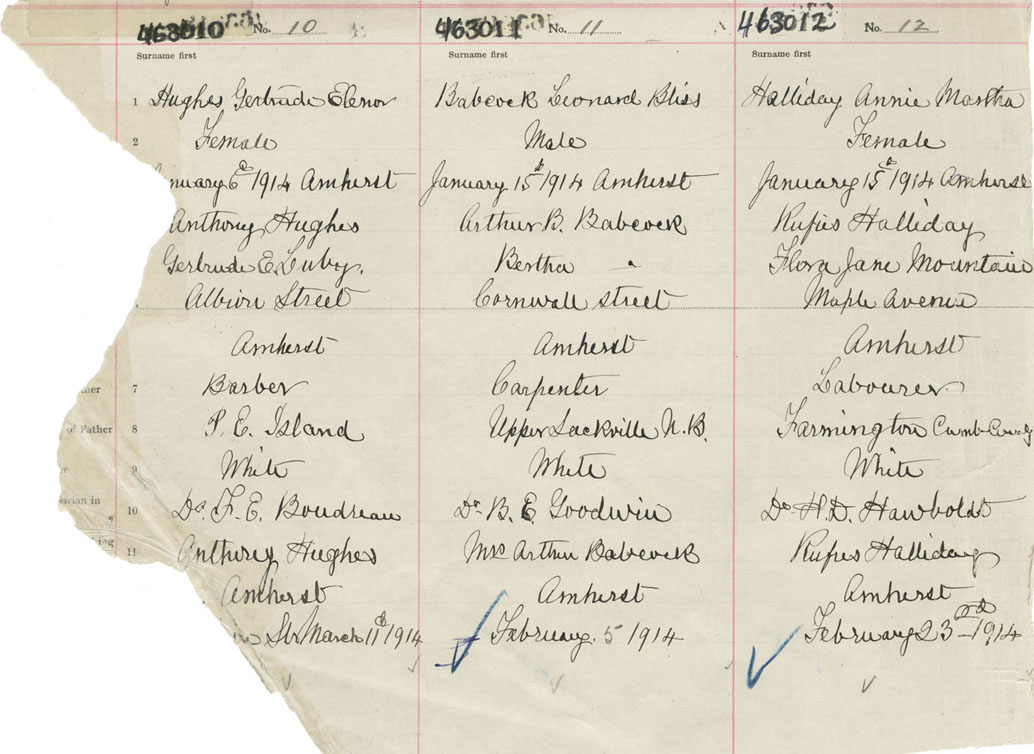 463010 No. 10
Surname first
1 Hughes Gertrude Elenor
2 Female
nuary 6th 1914 Amherst
Anthony Hughes
Gertrude E. Luby.
Albion Street
Amherst
7 Barber
of Father 8 P. E. Island
9 White
10 Dr. F. E. Boudreau
11 Anthony Hughes
Amherst
March 11th 1914
463011 No. 11
Surname first
Babcock Leonard Bliss
Male
January 15th 1914 Amherst
Arthur B. Babcock
Bertha "
Cornwall street
Amherst
Carpenter
Upper Sackville N.B.
White
Dr B. E Goodwin
Mrs Arthur Babcock
Amherst
February. 5 1914
463012 No. 12
Surname first
Halliday Annie Martha
Female
January 15th 1914 Amherst
Rufus Halliday
Flora Jane Mountain
Maple Avenue
Amherst
Labourer
Farmington Cumb. County
White
Dr H. D. Hawboldt
Rufus Halliday
Amherst
February 23rd 1914